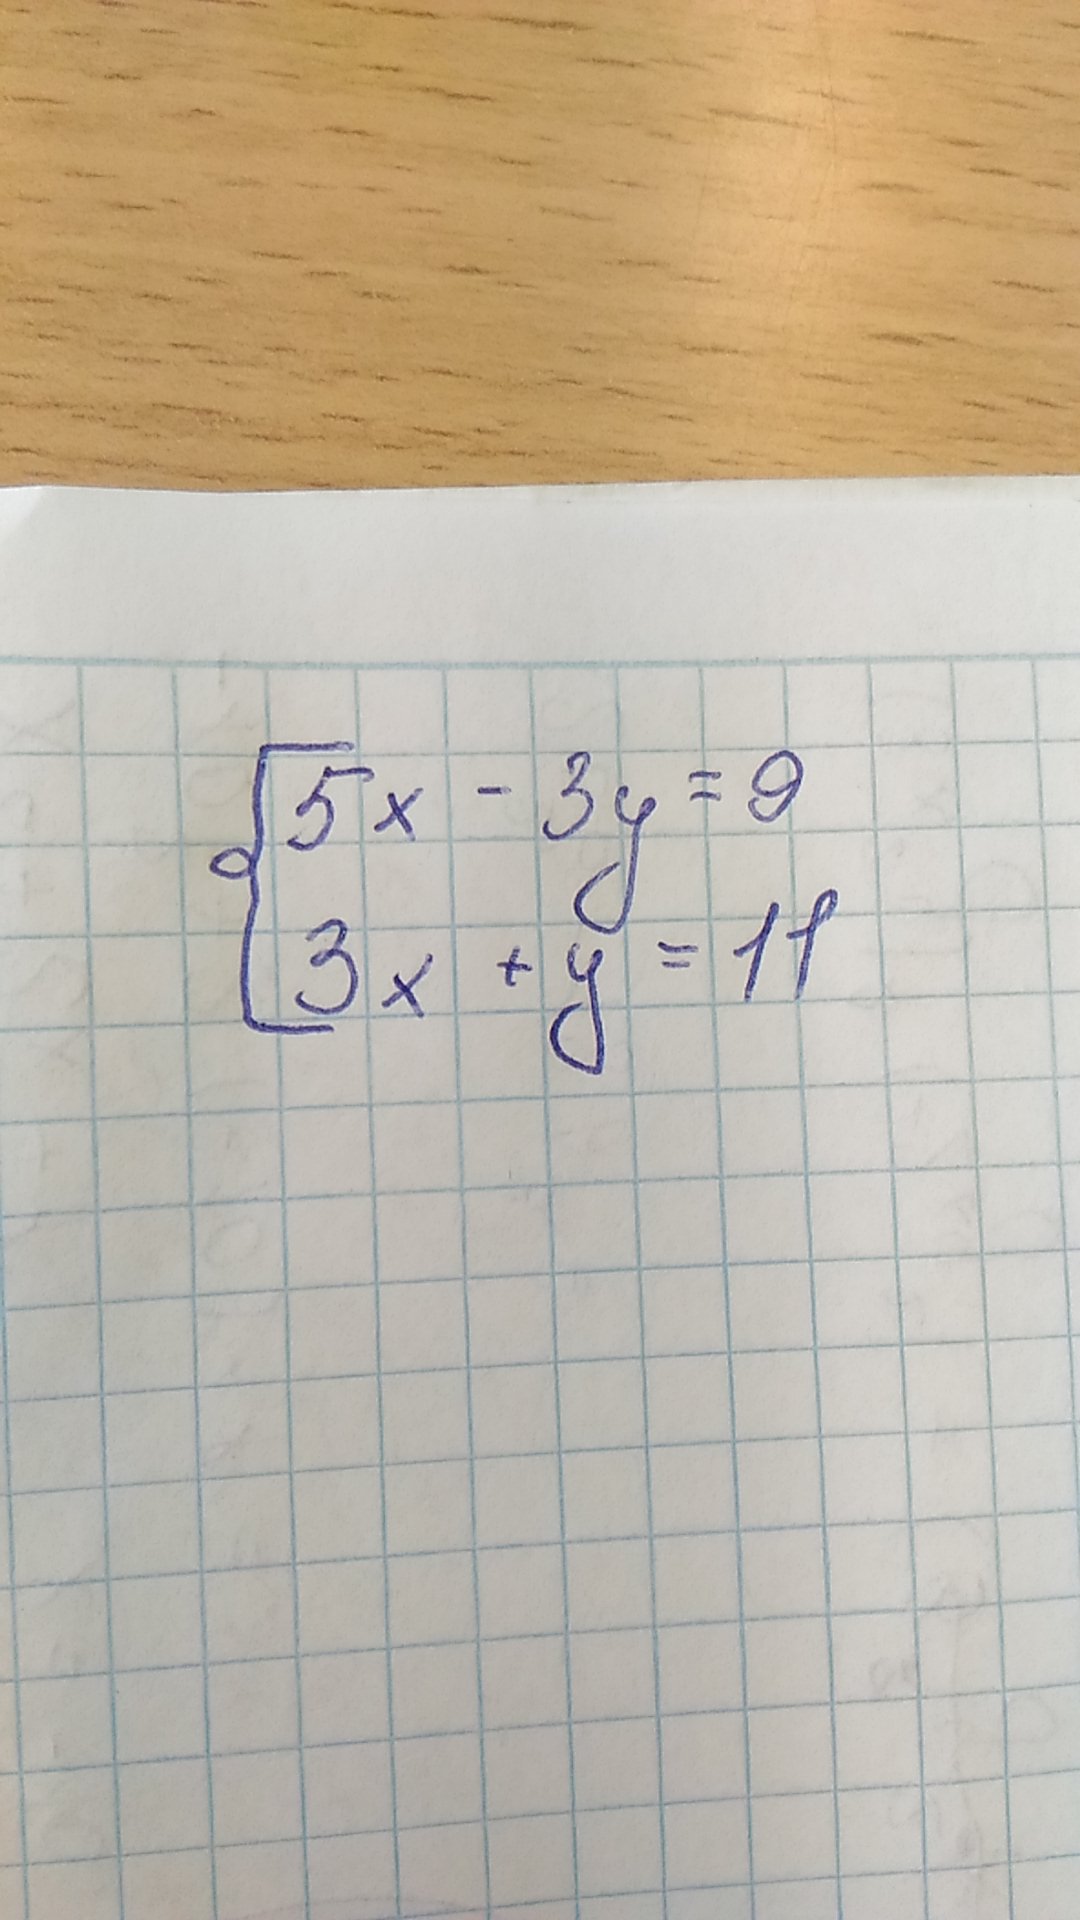 5x - 3y = 9
3x + y = 11